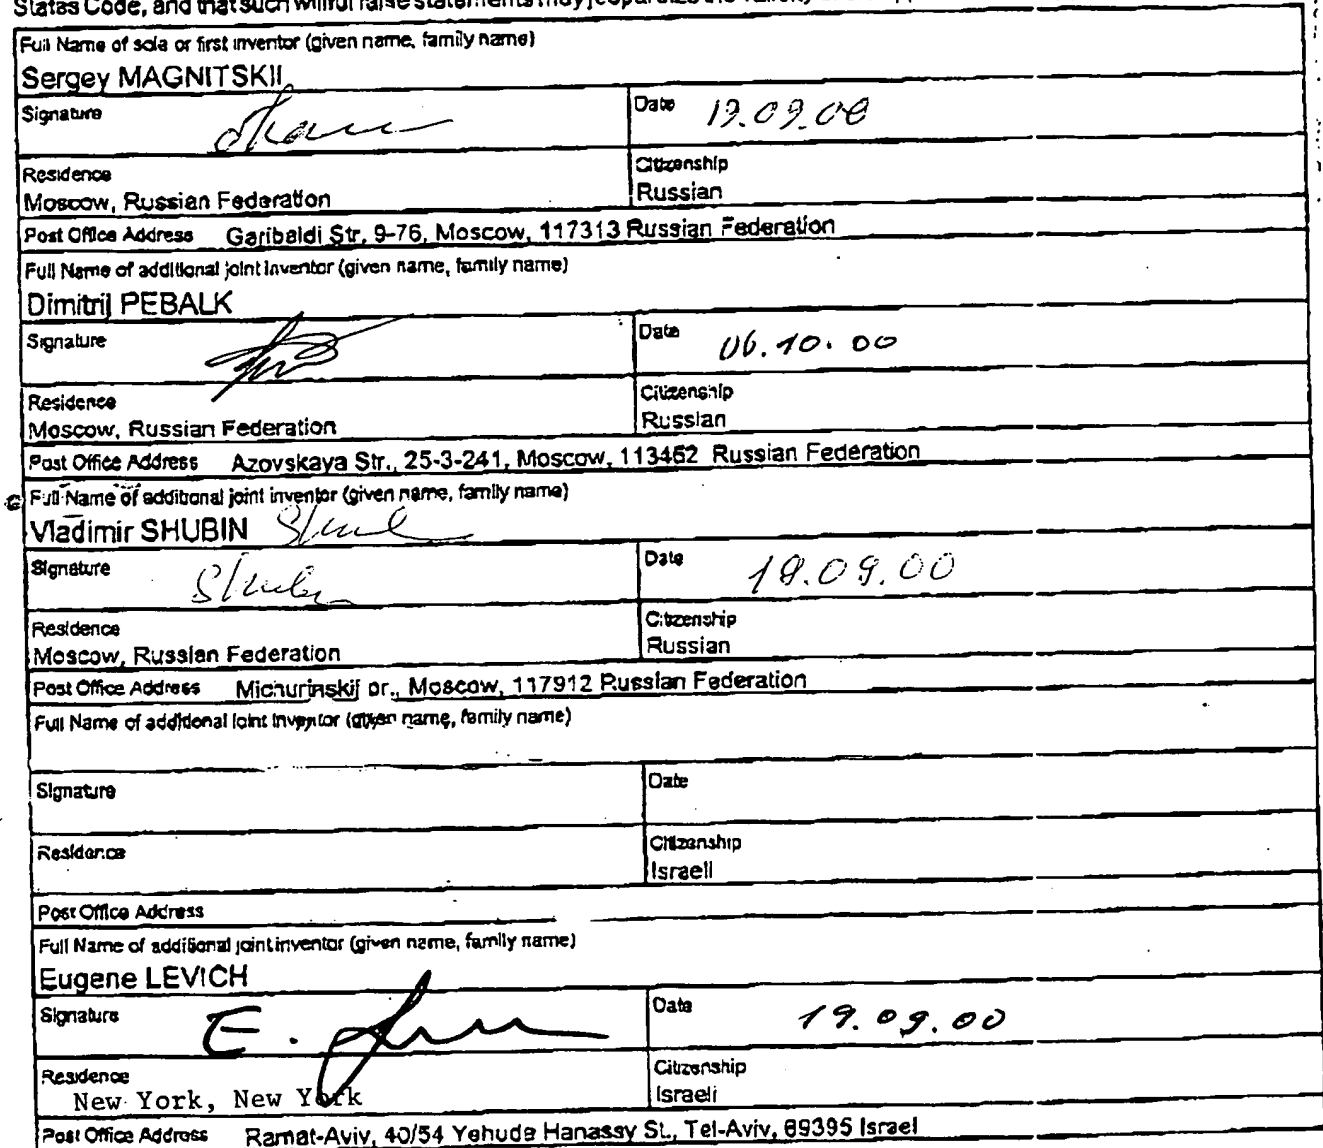 States Code, and that such willful false statements may jeopardize the validity
Full Name of sole or first inventor (given name, family name)
Sergey MAGNITSKII
Signature
Date 19.09.00
Residence
Moscow, Russian Federation
Citizenship
Russian
Post Office Address Garibaldi Str, 9-76, Moscow, 117313 Russian Federation
Full Name of additional joint inventor (given name, family name)
Dimitrij PEBALK
Signature
Date 06.10.00
Residence
Moscow, Russian Federation
Citizenship
Russian
Post Office Address Azovskaya Str., 25-3-241, Moscow, 113452 Russian Federation
Full Name of additional joint inventor (given name, family name)
Vladimir SHUBIN
Signature
Date 19.09.00
Residence
Moscow, Russian Federation
Citizenship
Russian
Post Office Address Michurinskij pr., Moscow, 117912 Russian Federation
Full Name of additional joint inventor (given name, family name)
Signature
Date
Residence
Citizenship
Israeli
Post Office Address
Full Name of additional joint inventor (given name, family name)
Eugene LEVICH
Signature E.
Date 19.09.00
Residence
New York, New York
Citizenship
Israeli
Post Office Address Ramat-Aviv, 40/54 Yehuda Hanassy St., Tel-Aviv, 69395 Israel